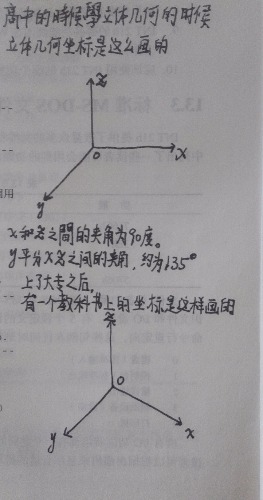 高中的時候學立体几何的时候
立体几何坐标是这么画的
z
O
x
y
x和z之間的夹角为90度。
y平分xz之间的夹角,约为135°
上了大专之后,
有一个教科书上的坐标是这样画的
z
O
y
x